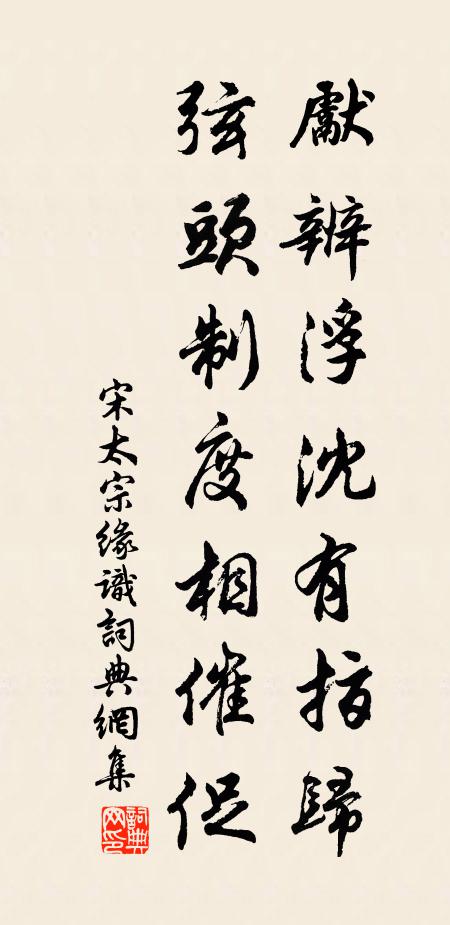 獻辨浮沈有指歸
弦頭制度相催促
宋太宗緣識詞典網集
詞典網印